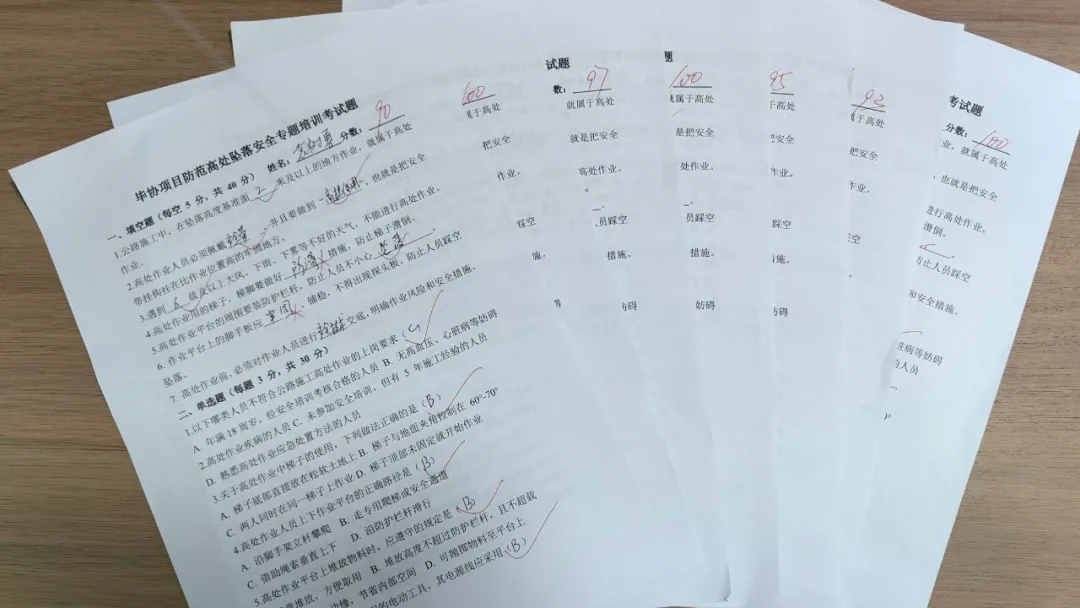 毕协项目防范高处坠落安全专题培训考试题
姓名： 分数：90
一、填空题（每空 5 分，共 40 分）
1.公路施工中，在坠落高度基准面 2 米及以上的地方作业，就属于高处
作业。
2.高处作业人员必须佩戴 ，并且要做到“高挂低用”，也就是把安全
带挂钩挂在比作业位置高的牢固地方。
3.遇到 6 级及以上大风、下雨、下雾等不好的天气，不能进行高处作业。
4.高处作业用的梯子，梯脚要做好 防滑 措施，防止梯子滑倒。
5.高处作业平台的周围要装防护栏杆，防止人员不小心 坠落 。
6.作业平台上的脚手板应 牢固 、铺稳，不得出现探头板，防止人员踩空
坠落。
7.高处作业前，必须对作业人员进行 交底，明确作业风险和安全措施。
二、单选题（每题 3 分，共 30 分）
1.以下哪类人员不符合公路施工高处作业的上岗要求（C）
A. 年满 18 周岁，经安全培训考核合格的人员 B. 无高血压、心脏病等妨碍
高处作业疾病的人员 C. 未参加安全培训，但有 5 年施工经验的人员
D. 熟悉高处作业应急处置方法的人员
2.关于高处作业中梯子的使用，下列做法正确的是（B）
A. 梯子底部直接放在松软土地上 B. 梯子与地面夹角控制在 60°-70°
C. 两人同时在同一梯子上作业 D. 梯子顶部未固定就开始作业
3.高处作业人员上下作业平台的正确路径是（B）
A. 沿脚手架立杆攀爬 B. 走专用爬梯或安全通道
C. 借助绳索垂直上下 D. 沿防护栏杆滑行
4.高处作业平台上堆放物料时，应遵守的规定是（B）
堆放，方便取用 B. 堆放高度不超过防护栏杆，且不超载
边缘，节省内部空间 D. 可抛掷物料至平台上
的电动工具，其电源线应采用（B）
100
于高处
把安全
作业。
踩空
施。
试题
数：97
就属于高处
就是把安全
高处作业。
。
员踩空
措施。
妨碍
题
100
就属于高处
是把安全
处作业。
员踩空
措施。
妨碍
95
于高处
把安全
作业。
踩空
施。
妨碍
93
于高处
把安全
作业。
空
考试题
分数：100
业，就属于高处
，也就是把安全
进行高处作业。
滑倒。
防止人员踩空
和安全措施。
脏病等妨碍
的人员